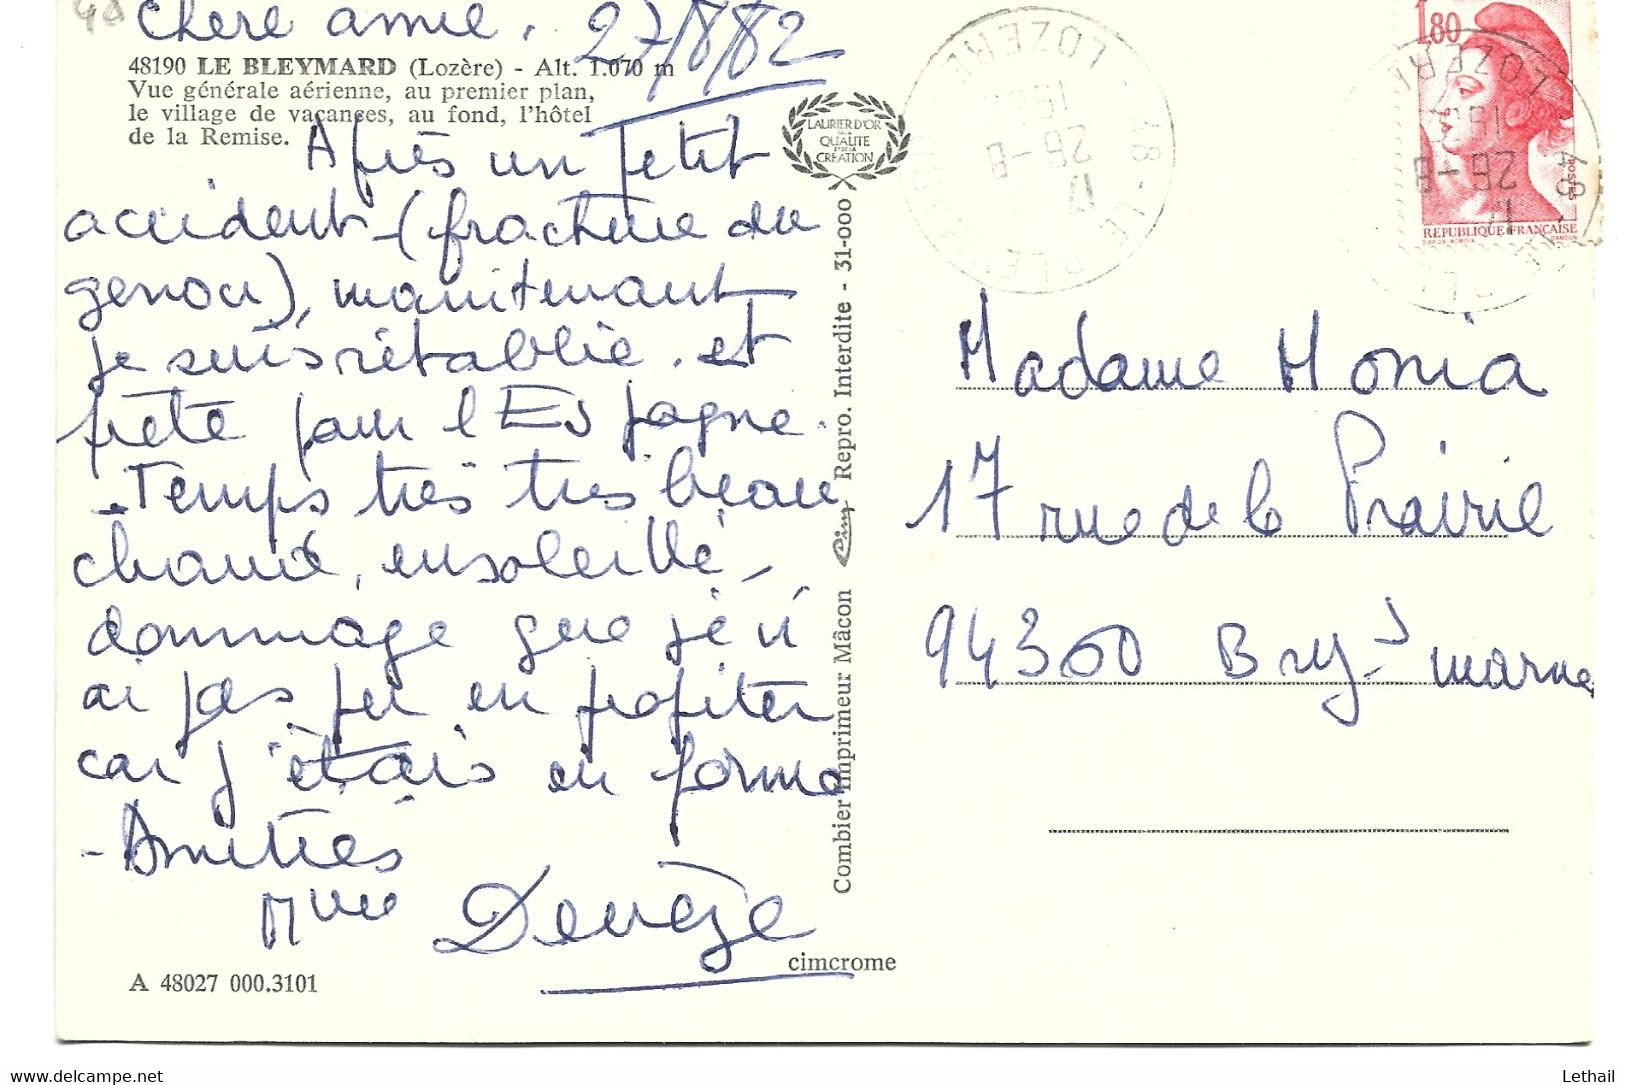 Chère amie, 27/8/82
48190 LE BLEYMARD (Lozère) - Alt. 1.070 m
Vue générale aérienne, au premier plan,
le village de vacances, au fond, l'hôtel
de la Remise.
Après un petit
accident (fracture du
genou), maintenant
je suis rétablie. et
prête pour l'Espagne.
- Temps très très beau
chaud, ensoleillé,
dommage que je n'
ai pas pu en profiter
car j'étais en forme
- Amitiés
Mme Devèze
A 48027 000.3101
cimcrome
LAURIER D'OR
DE LA
QUALITÉ
ET DE LA
CRÉATION
Combier Imprimeur Mâcon Cim Repro. Interdite - 31-000
48 - LE BLEYMARD
LOZERE
17
26-8
1982
1,80
POSTES
REPUBLIQUE FRANÇAISE
D'AP. DELACROIX GANDON
48 - LE BL
LOZERE
17
26-8
Madame Monia
17 rue de la Prairie
94360 Bry s/ marne
Lethail
www.delcampe.net